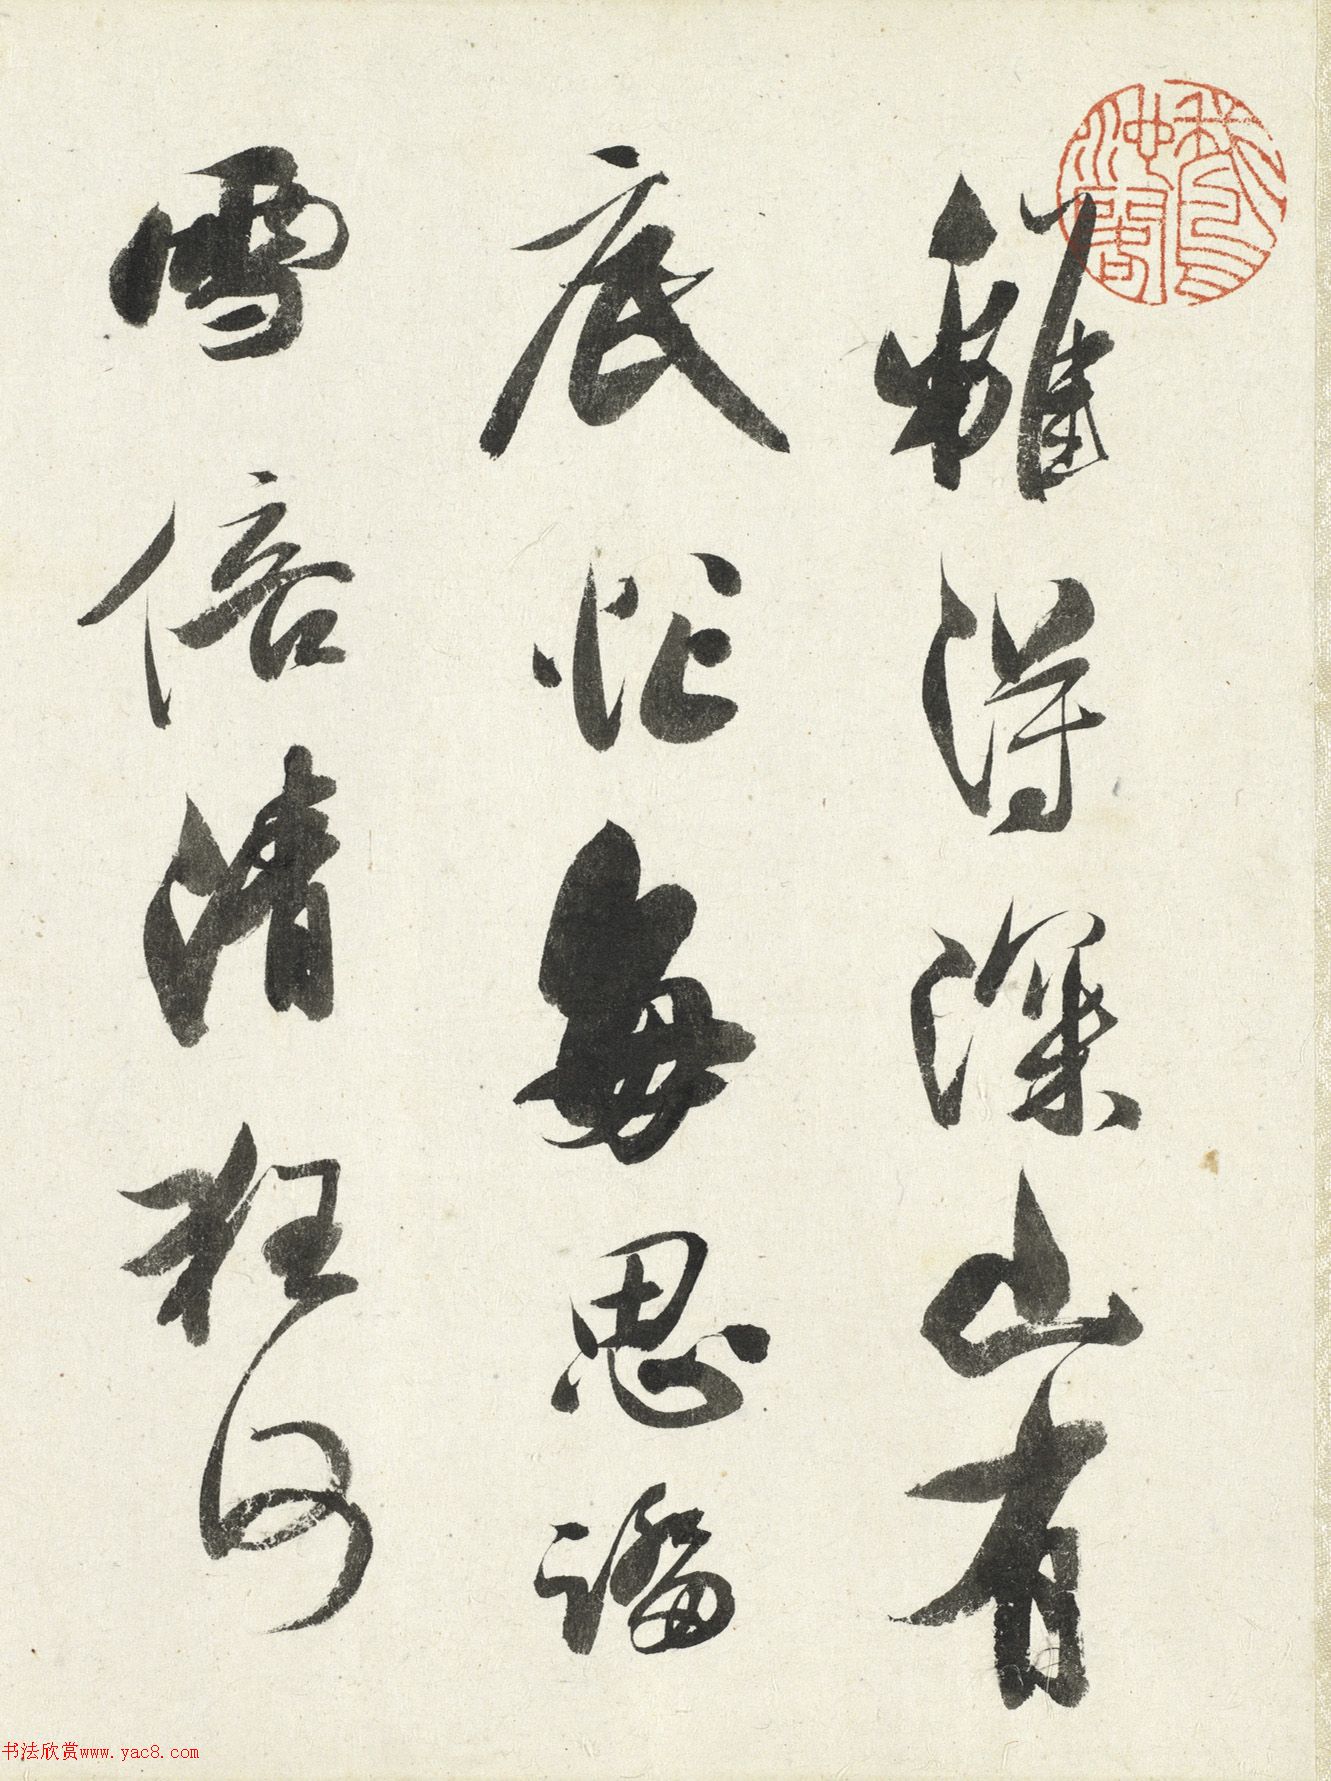 離得深山有
底忙每思詣
雪倍清狂何
书法欣赏www.yac8.com